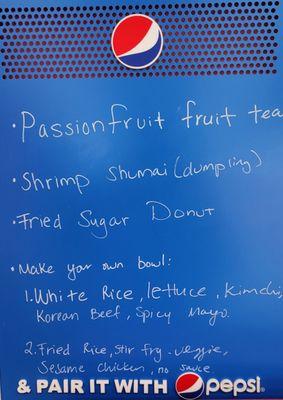 • Passionfruit fruit tea
• Shrimp Shumai (dumpling)
• Fried Sugar Donut
• Make your own bowl:
1. White Rice, lettuce, Kimchi,
Korean Beef, Spicy Mayo.
2. Fried Rice, stir fry veggie,
Sesame chicken, no sauce.
& PAIR IT WITH pepsi